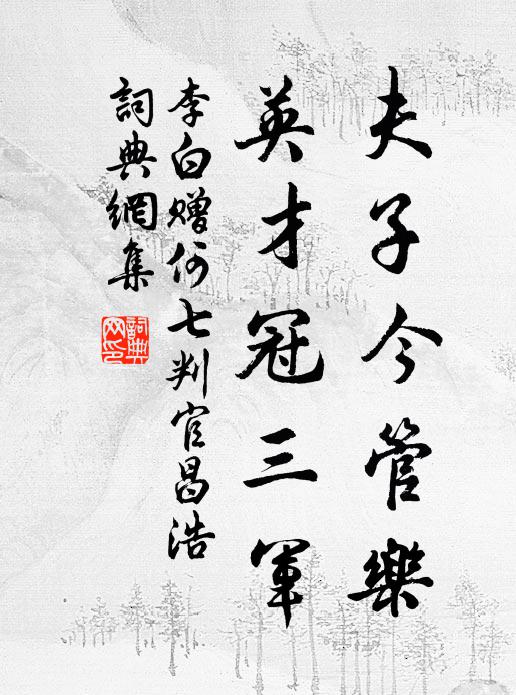 夫子今管樂
英才冠三軍
李白赠何七判官昌浩
詞典網集
詞典网印